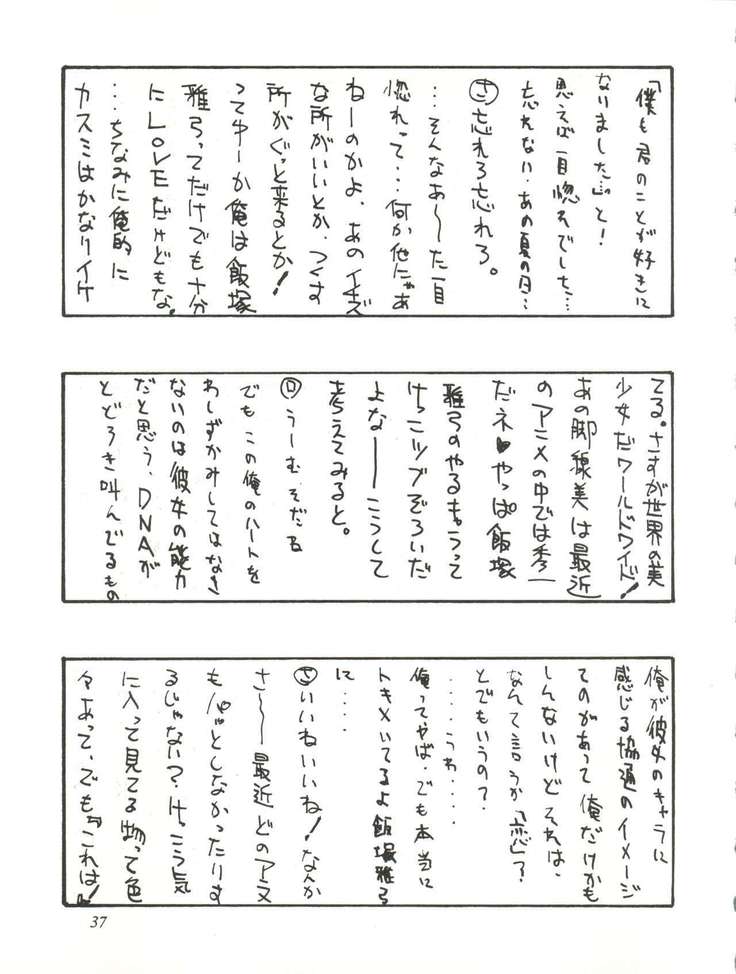 「僕も君のことが好きに
なりましたぶっと!
思えば一目惚れでした…
忘れない、あの夏の日…
㋚忘れろ忘れろ。
…そんなあ〜た一目
惚れって…何か他にゃあ
ねーのかよ、あのイキズ
な所がいいとか、つくす
所がぐっと来るとか!
ってゆーか俺は飯塚
雅弓ってだけでも十分
にLOVEだけどもな。
…ちなみに俺的に
カスミはかなりイケ
てる。さすが世界の美
少女だワールドワイド!
あの脚線美は最近
のアニメの中では秀一
だネ♥やっぱ飯塚
雅弓のやるキャラって
けっこツブぞろいだ
よなーこうして
考えてみると。
㋺うーむ、そだね
でもこの俺のハートを
わしずかみしてはなさ
ないのは彼女の能力
だと思う、DNAが
とどろき叫んでるもの
俺が彼女のキャラに
感じる協通のイメージ
てのがあって俺だけかも
しんないけどそれは、
なんて言うか「恋」?
とでもいうの?
……うわ……
俺ってやば、でも本当に
トキメいてるよ飯塚雅弓
に……
㋚いいねいいね!なんか
さ〜最近どのアニメ
もパッとしなかったりす
るじゃない?けっこう気
に入って見てる物って色
々あって、でも『これは!』